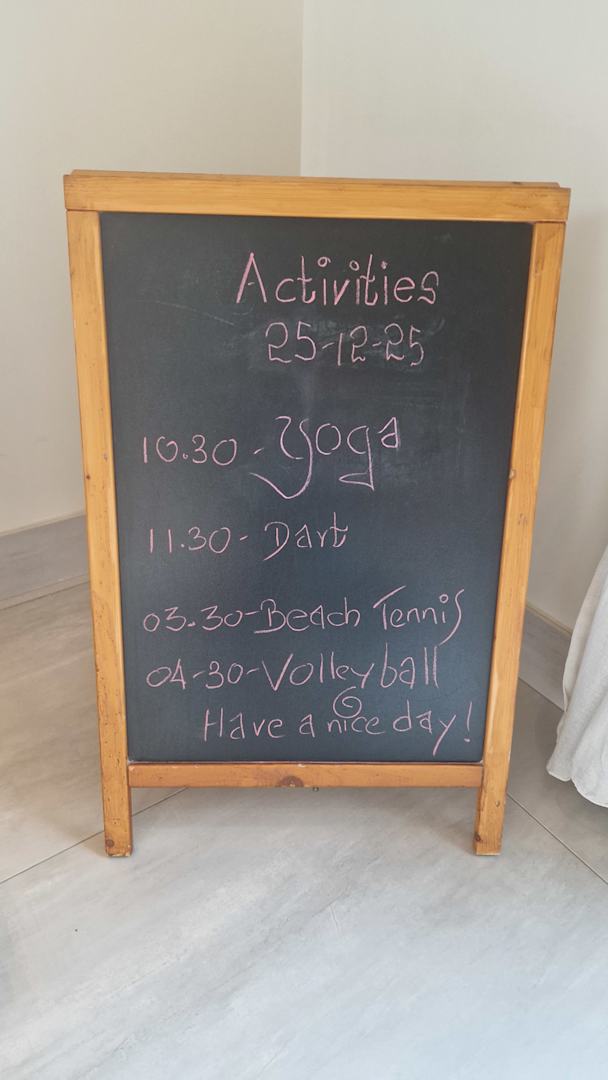 Activities
25-12-25
10.30 - Yoga
11.30 - Dart
03.30 - Beach Tennis
04-30 - Volleyball
Have a nice day!